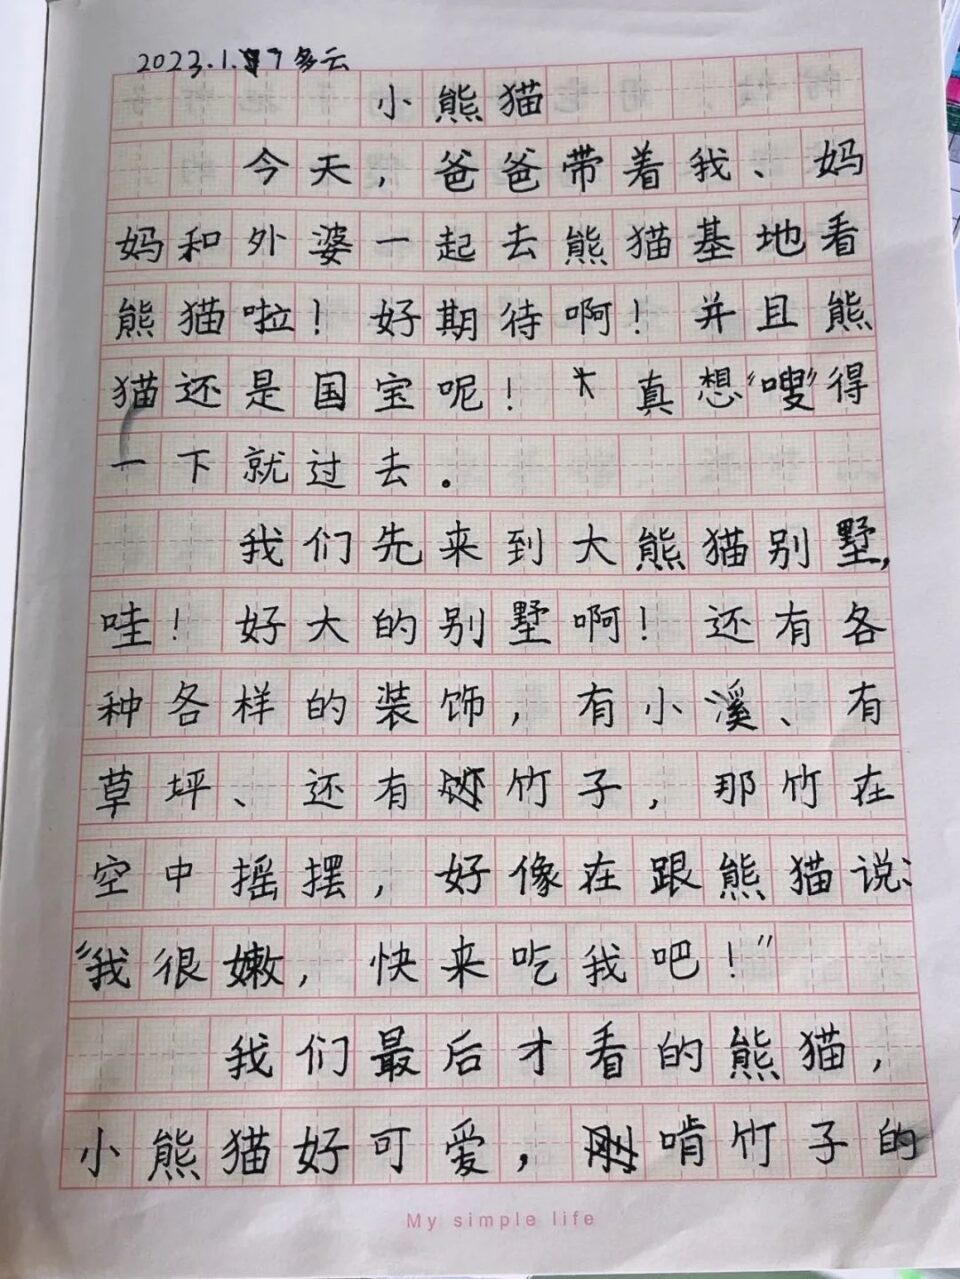 2023.1.7 多云
小熊猫
今天，爸爸带着我、妈
妈和外婆一起去熊猫基地看
熊猫啦！好期待啊！并且熊
猫还是国宝呢！真想“嗖”得
一下就过去。
我们先来到大熊猫别墅，
哇！好大的别墅啊！还有各
种各样的装饰，有小溪、有
草坪、还有竹子，那竹在
空中摇摆，好像在跟熊猫说：
“我很嫩，快来吃我吧！”
我们最后才看的熊猫，
小熊猫好可爱，啃竹子的
My simple life